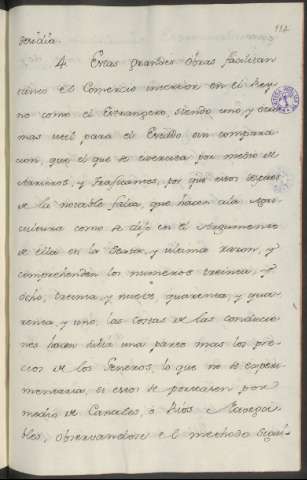 desidia.
4. Estas grandes obras facilitan
tanto el Comercio interior en el Rey-
no como el Estrangero, siendo uno, y otro
mas util para el Erario sin compara-
cion, que el que se executa por medio de
Arrieros, y Traficantes, por que estos depues
de la notable falta, que hacen ala Agri-
cultura como se dijo en el Argumento
de ella en la Sexta, y ultima razon, y
comprehenden los numeros treinta, y
ocho, treinta y nueve, quarenta, y qua-
renta, y uno, las costas de las conducio-
nes hacen subir una parte mas los pre-
cios de los Generos, lo que no se experi-
mentaria, si estos se portasen por
medio de Canales, ò Rios Navega-
bles, observandose el methodo sigui-